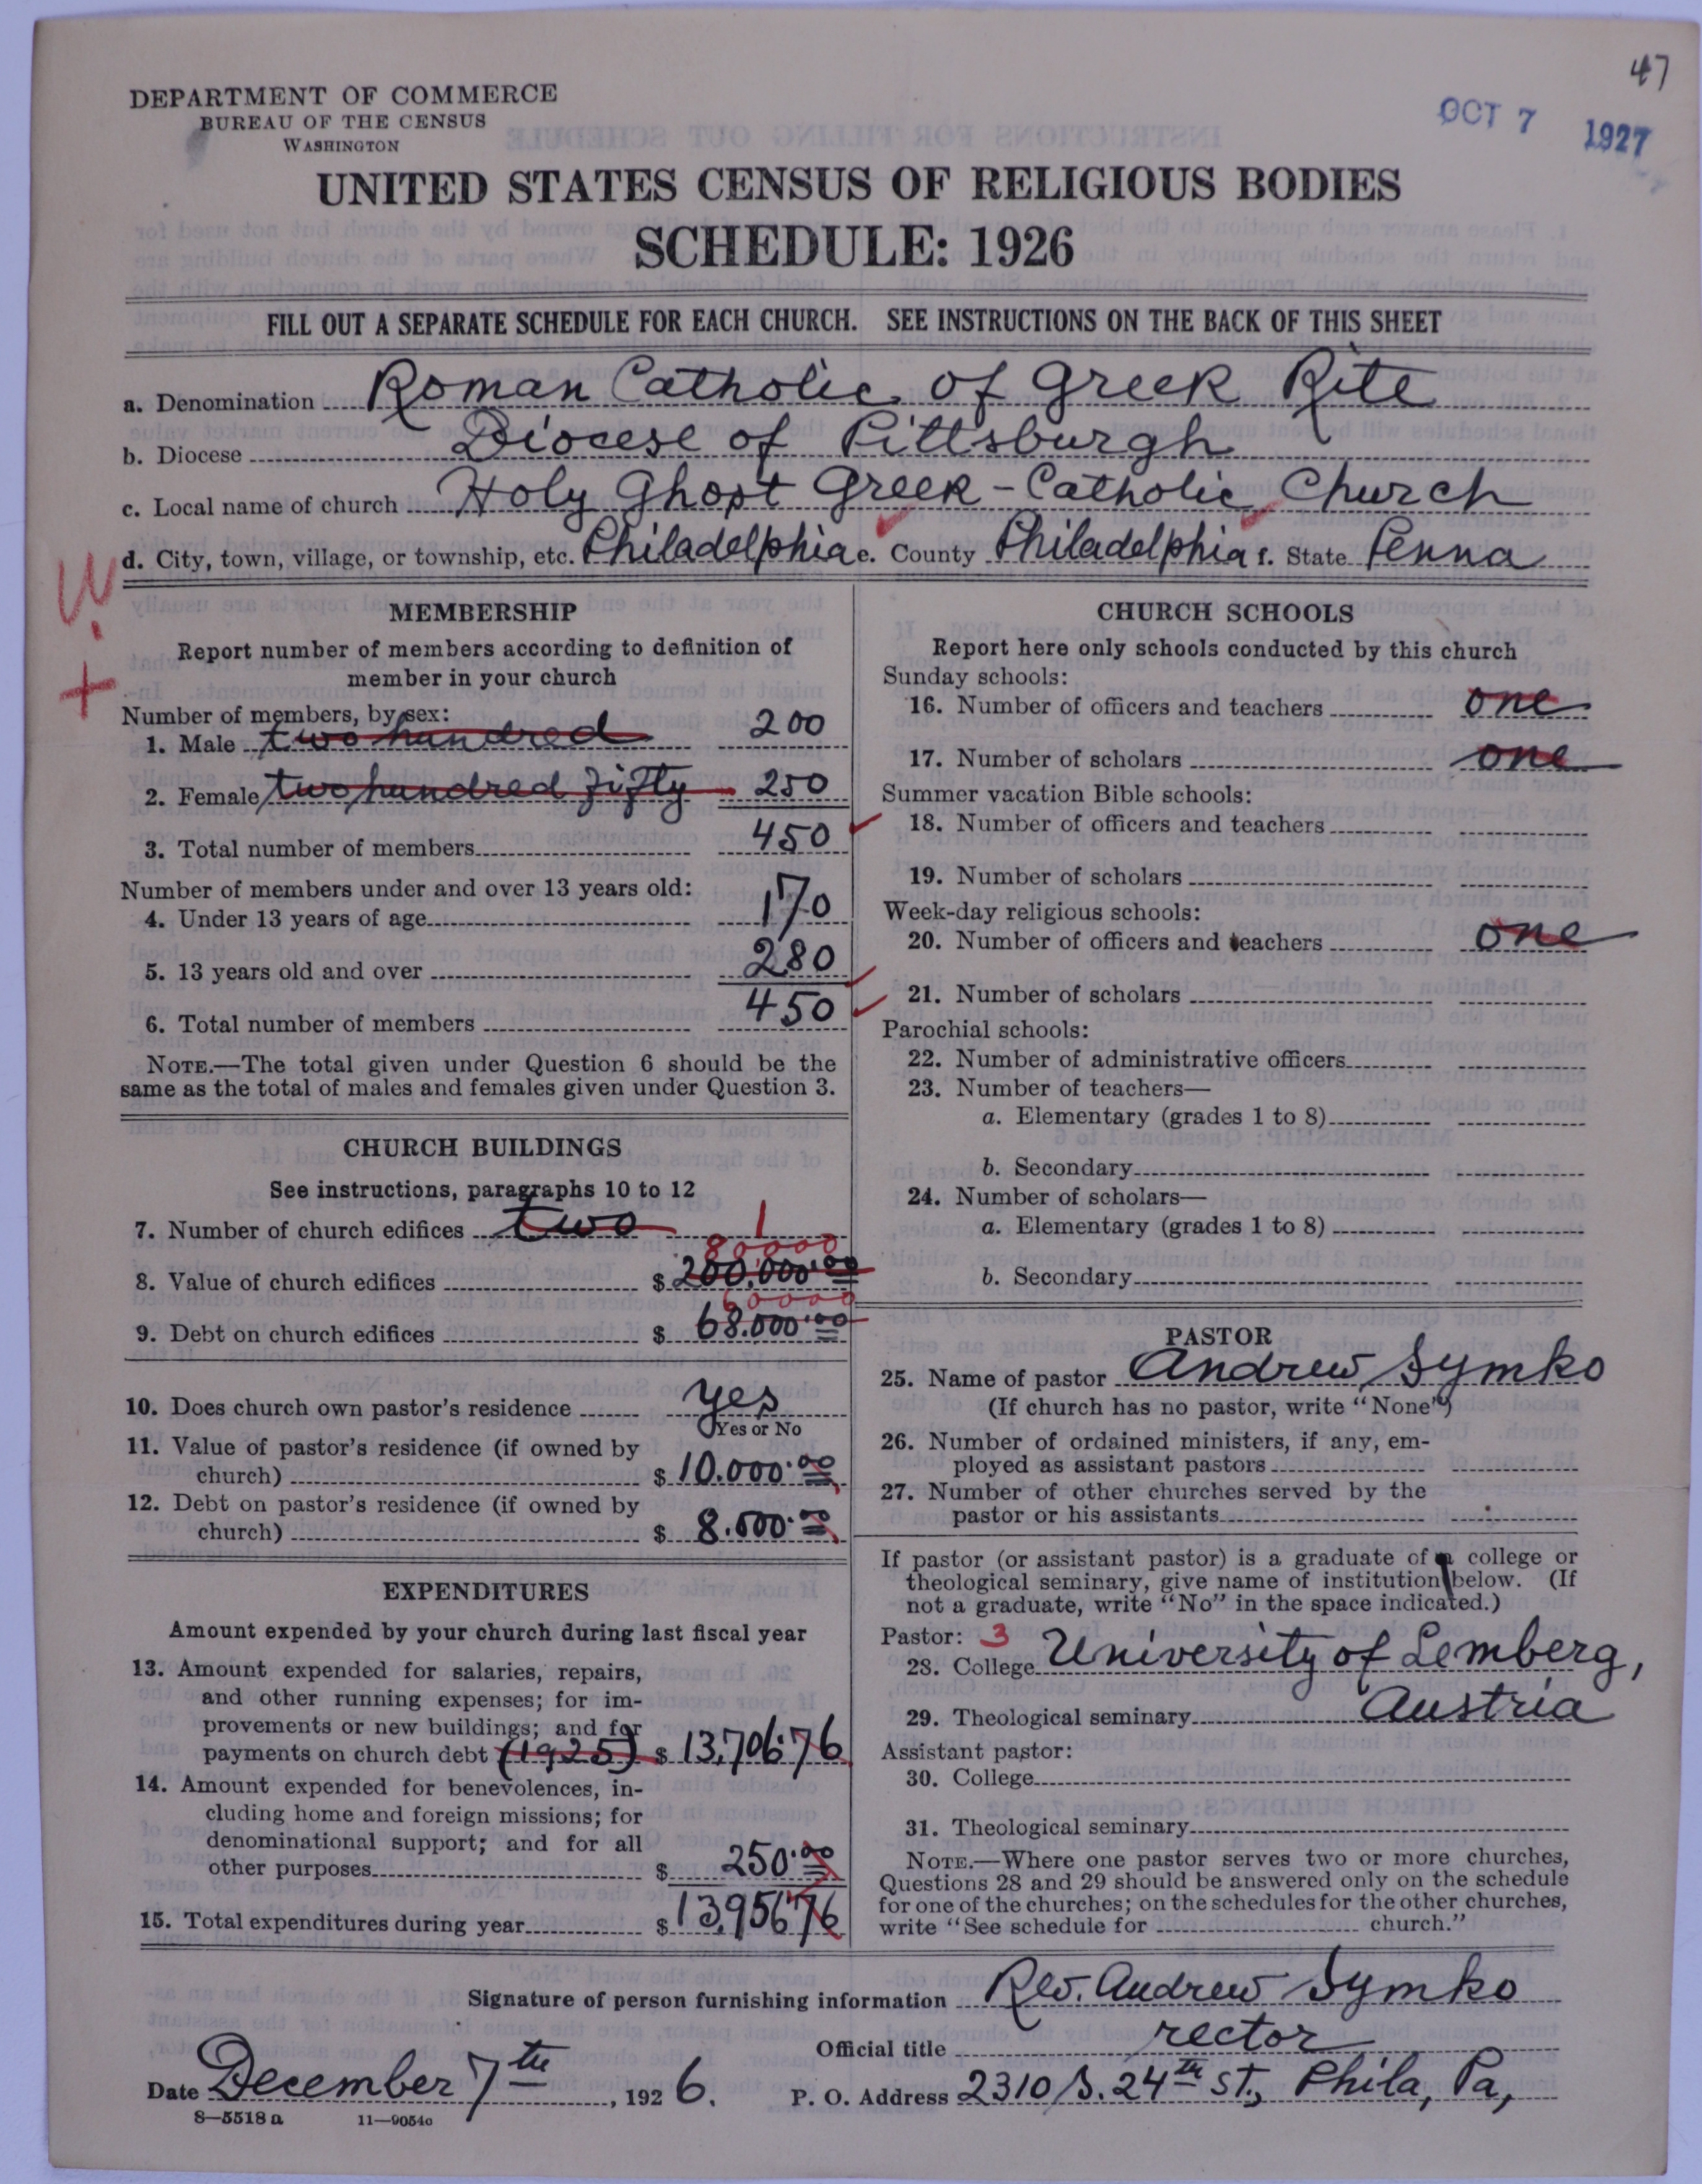 47
OCT 7 1927
DEPARTMENT OF COMMERCE
BUREAU OF THE CENSUS
WASHINGTON
UNITED STATES CENSUS OF RELIGIOUS BODIES
SCHEDULE: 1926
FILL OUT A SEPARATE SCHEDULE FOR EACH CHURCH. SEE INSTRUCTIONS ON THE BACK OF THIS SHEET
a. Denomination Roman Catholic of Greek Rite
b. Diocese Diocese of Pittsburgh
c. Local name of church Holy Ghost Greek-Catholic Church
d. City, town, village, or township, etc. Philadelphia e. County Philadelphia f. State Penna
MEMBERSHIP
Report number of members according to definition of
member in your church
Number of members, by sex:
1. Male two hundred 200
2. Female two hundred fifty 250
3. Total number of members 450
Number of members under and over 13 years old:
4. Under 13 years of age 170
5. 13 years old and over 280
6. Total number of members 450
NOTE.—The total given under Question 6 should be the
same as the total of males and females given under Question 3.
CHURCH BUILDINGS
See instructions, paragraphs 10 to 12
7. Number of church edifices two 1
80000
8. Value of church edifices $ 200.000.00
60000
9. Debt on church edifices $ 68.000.00
10. Does church own pastor's residence yes
Yes or No
11. Value of pastor's residence (if owned by
church) $ 10.000.00
12. Debt on pastor's residence (if owned by
church) $ 8.000.00
EXPENDITURES
Amount expended by your church during last fiscal year
13. Amount expended for salaries, repairs,
and other running expenses; for im-
provements or new buildings; and for
payments on church debt (1925) $ 13,706.76
14. Amount expended for benevolences, in-
cluding home and foreign missions; for
denominational support; and for all
other purposes $ 250.00
15. Total expenditures during year $ 13,956.76
CHURCH SCHOOLS
Report here only schools conducted by this church
Sunday schools:
16. Number of officers and teachers one
17. Number of scholars one
Summer vacation Bible schools:
18. Number of officers and teachers
19. Number of scholars
Week-day religious schools:
20. Number of officers and teachers one
21. Number of scholars
Parochial schools:
22. Number of administrative officers
23. Number of teachers—
a. Elementary (grades 1 to 8)
b. Secondary
24. Number of scholars—
a. Elementary (grades 1 to 8)
b. Secondary
PASTOR
25. Name of pastor Andrew Symko
(If church has no pastor, write "None")
26. Number of ordained ministers, if any, em-
ployed as assistant pastors
27. Number of other churches served by the
pastor or his assistants
If pastor (or assistant pastor) is a graduate of a college or
theological seminary, give name of institution below. (If
not a graduate, write "No" in the space indicated.)
Pastor: 3
28. College University of Lemberg,
29. Theological seminary Austria
Assistant pastor:
30. College
31. Theological seminary
NOTE.—Where one pastor serves two or more churches,
Questions 28 and 29 should be answered only on the schedule
for one of the churches; on the schedules for the other churches,
write "See schedule for church."
Signature of person furnishing information Rev. Andrew Symko
Official title rector
Date December 7th, 1926. P. O. Address 2310 S. 24th St., Phila, Pa,
8—5518a 11—9054o